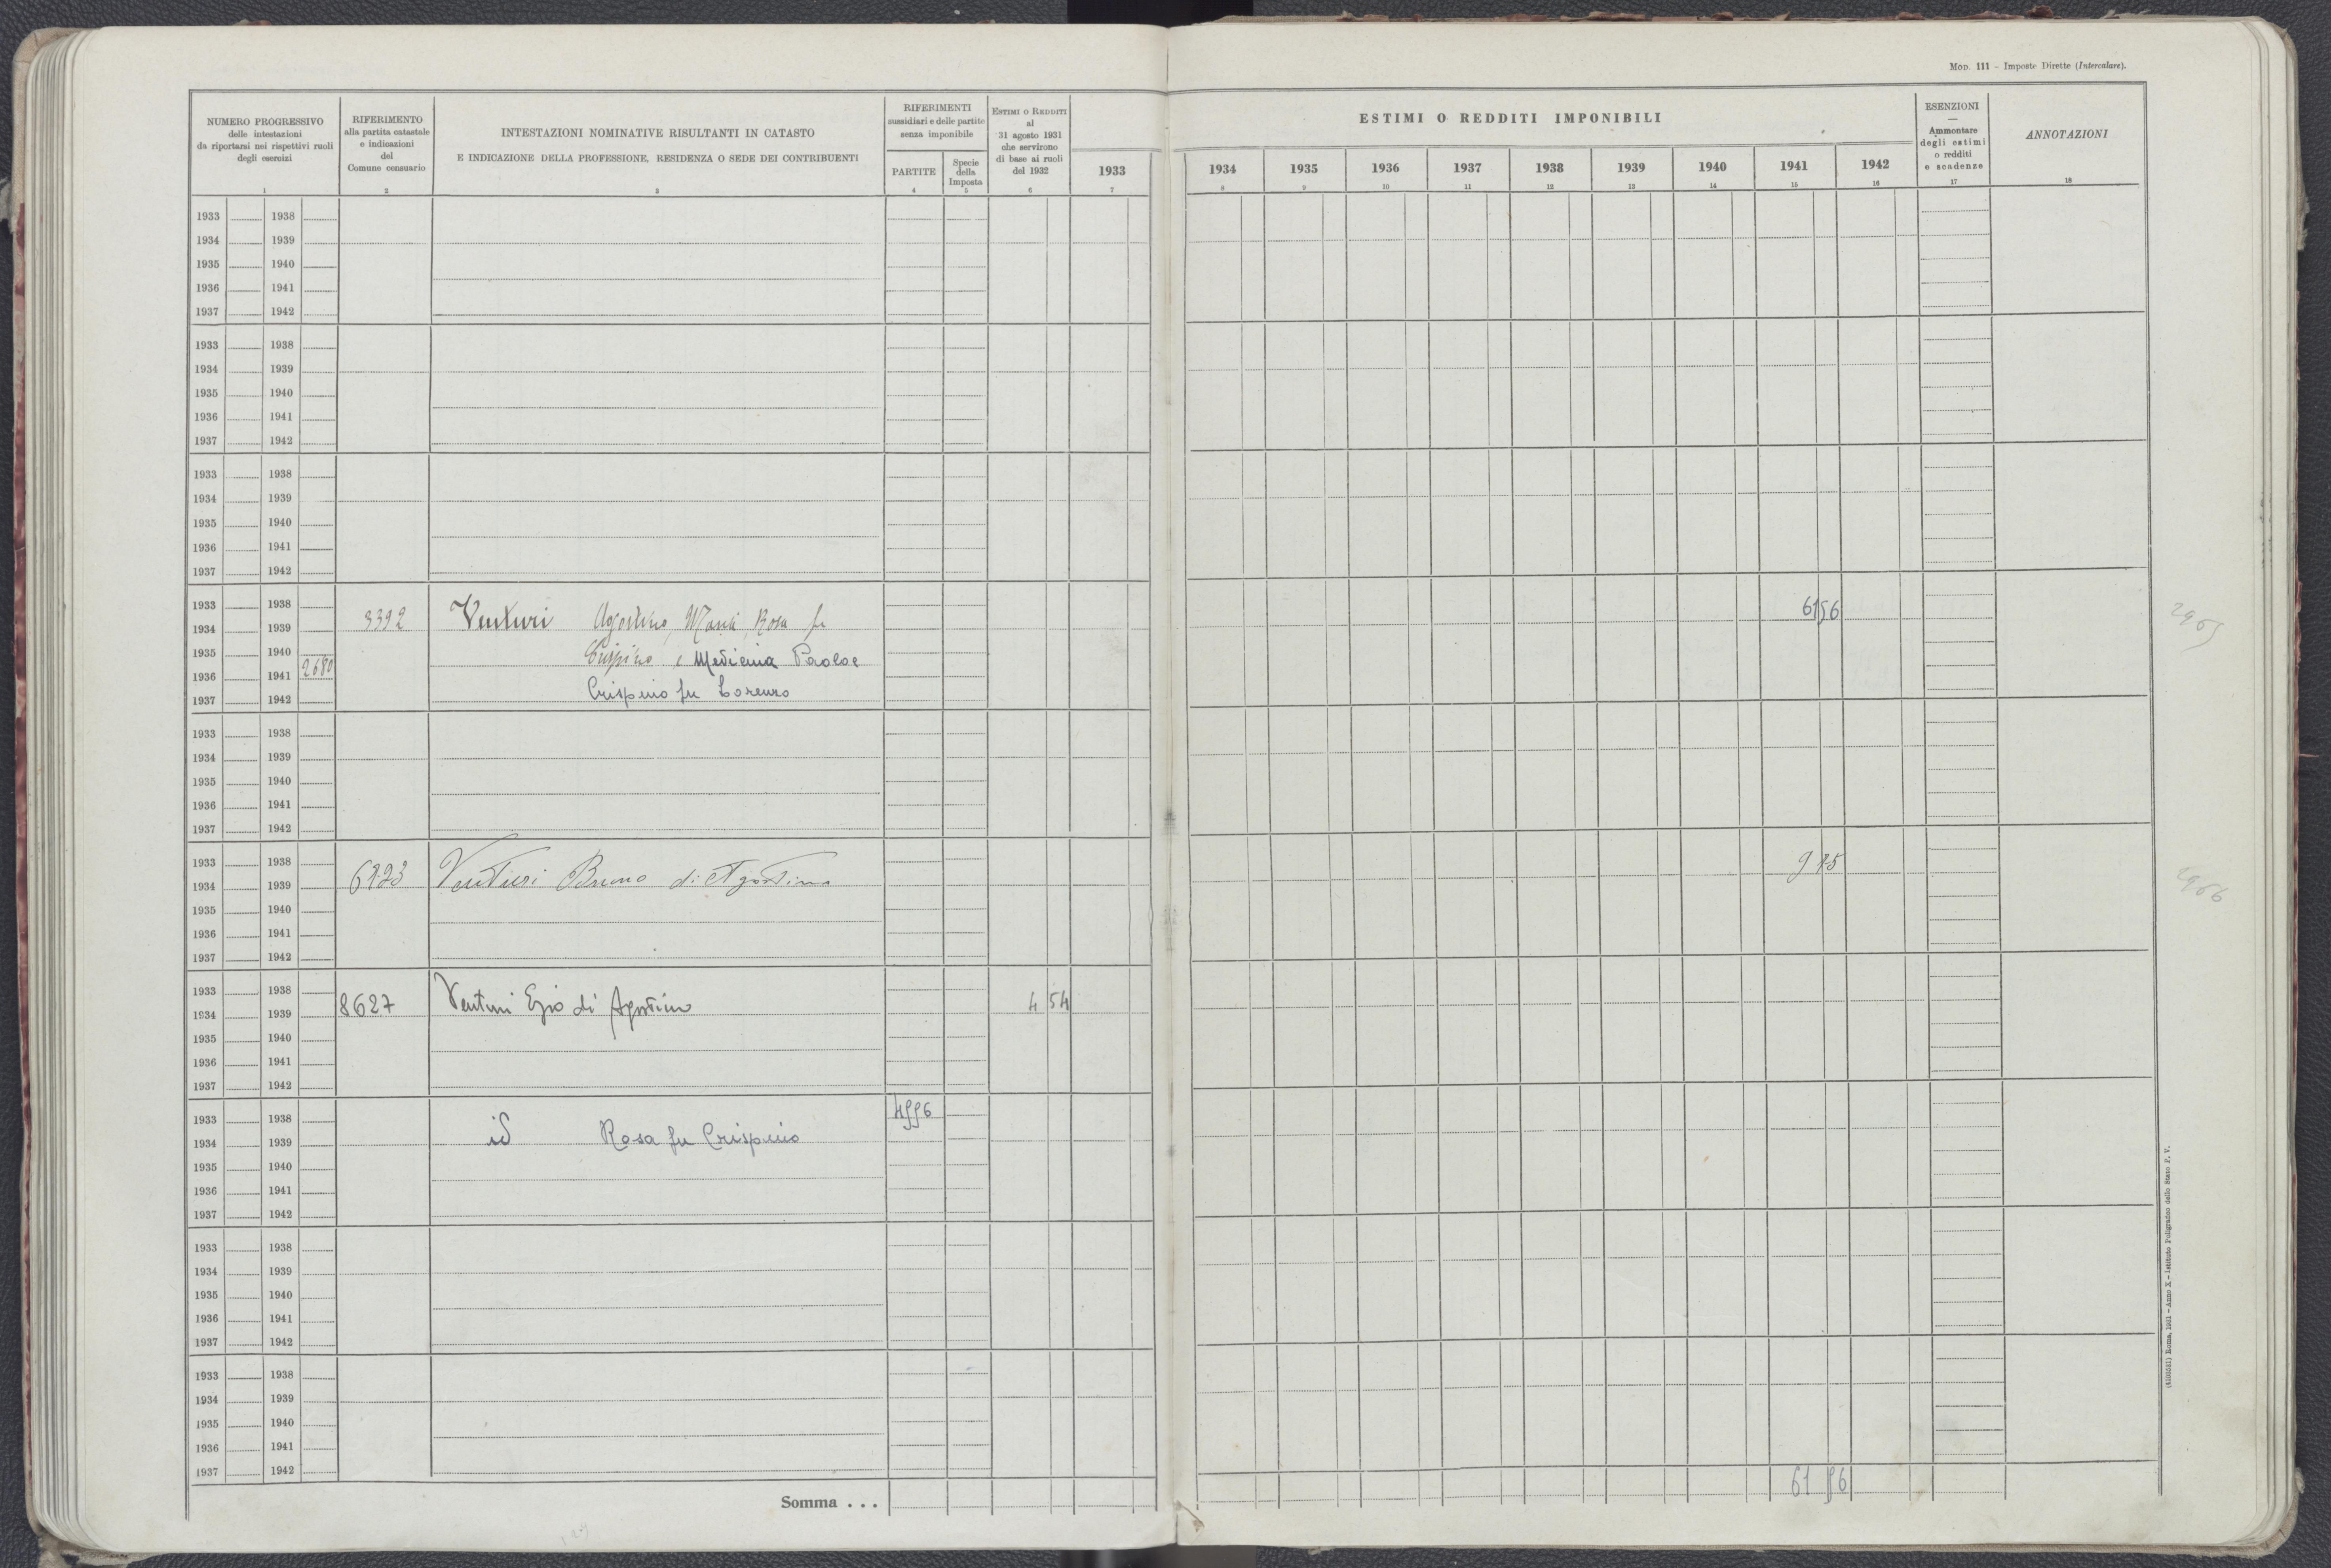 Mod. 111 – Imposte Dirette (Intercalare).
NUMERO PROGRESSIVO
delle intestazioni
da riportarsi nei rispettivi ruoli
degli esercizi
1
RIFERIMENTO
alla partita catastale
e indicazioni
del
Comune censuario
2
INTESTAZIONI NOMINATIVE RISULTANTI IN CATASTO
E INDICAZIONE DELLA PROFESSIONE, RESIDENZA O SEDE DEI CONTRIBUENTI
3
RIFERIMENTI
sussidiari e delle partite
senza imponibile
PARTITE
4
Specie
della
Imposta
5
ESTIMI O REDDITI
al
31 agosto 1931
che servirono
di base ai ruoli
del 1932
6
ESTIMI O REDDITI IMPONIBILI
1933 1934 1935 1936 1937 1938 1939 1940 1941 1942
7 8 9 10 11 12 13 14 15 16
ESENZIONI
—
Ammontare
degli estimi
o redditi
e scadenze
17
ANNOTAZIONI
18
1933 1938
1934 1939
1935 1940
1936 1941
1937 1942
1933 1938
1934 1939
1935 1940
1936 1941
1937 1942
1933 1938
1934 1939
1935 1940
1936 1941
1937 1942
1933 1938
1934 1939 3392 Venturi Agostino, Maria, Rosa fu 61 56
1935 1940 Crispino e Medicina Paolo e
1936 1941 2680
1937 1942 Crispino fu Lorenzo
2965
1933 1938
1934 1939
1935 1940
1936 1941
1937 1942
1933 1938
1934 1939 6123 Venturi Bruno di Agostino
1935 1940
1936 1941
1937 1942
2966
1933 1938
1934 1939 8627 Venturi Ezio di Agostino 4 54
1935 1940
1936 1941
1937 1942
1933 1938
1934 1939 id Rosa fu Crispino
1935 1940
1936 1941
1937 1942
1933 1938
1934 1939
1935 1940
1936 1941
1937 1942
1933 1938
1934 1939
1935 1940
1936 1941
1937 1942
Somma . . . 61